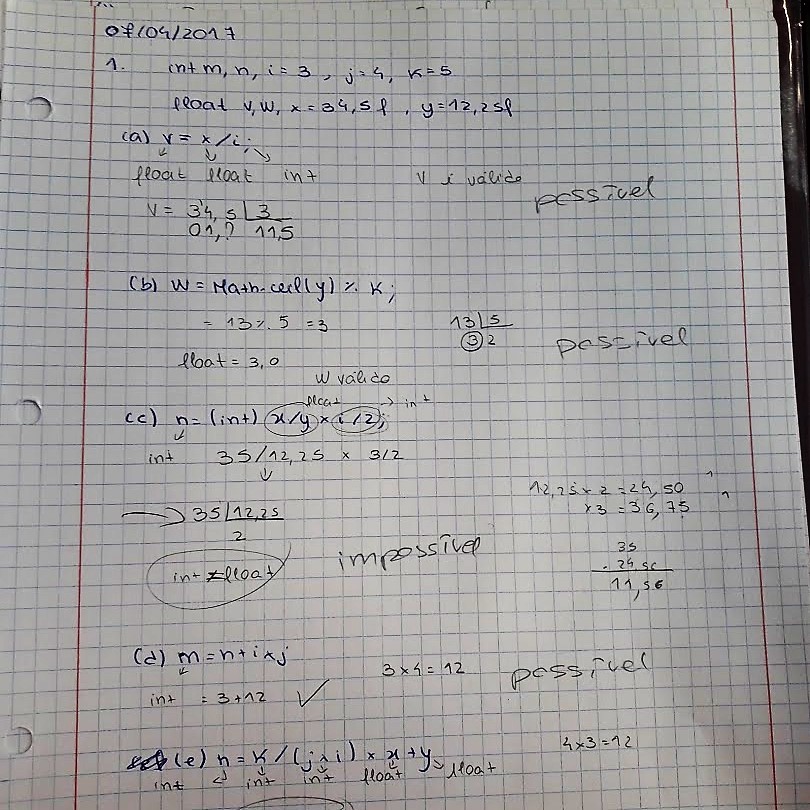 07/04/2017
1. int m, n, i = 3, j = 4, k = 5
float v, w, x = 34,5f, y = 12,25f
(a) v = x / i;
float float int v i válido possível
v = 34,5 | 3
01,? 11,5
(b) w = Math.ceil(y) % k;
= 13 % 5 = 3 13 | 5 possível
③ 2
float = 3,0
w válido
float → int
(c) n = (int) (x/y × i/2);
int 35/12,25 × 3/2
12,25 × 2 = 24,50
→ 35 | 12,25 × 3 = 36,75
2
int ≠ float impossível 35
- 24 50
11,50
(d) m = n + i × j
3 × 4 = 12 possível
int = 3 + 12 ✓
4 × 3 = 12
(e) n = k / (j × i) × x + y
int int int float float